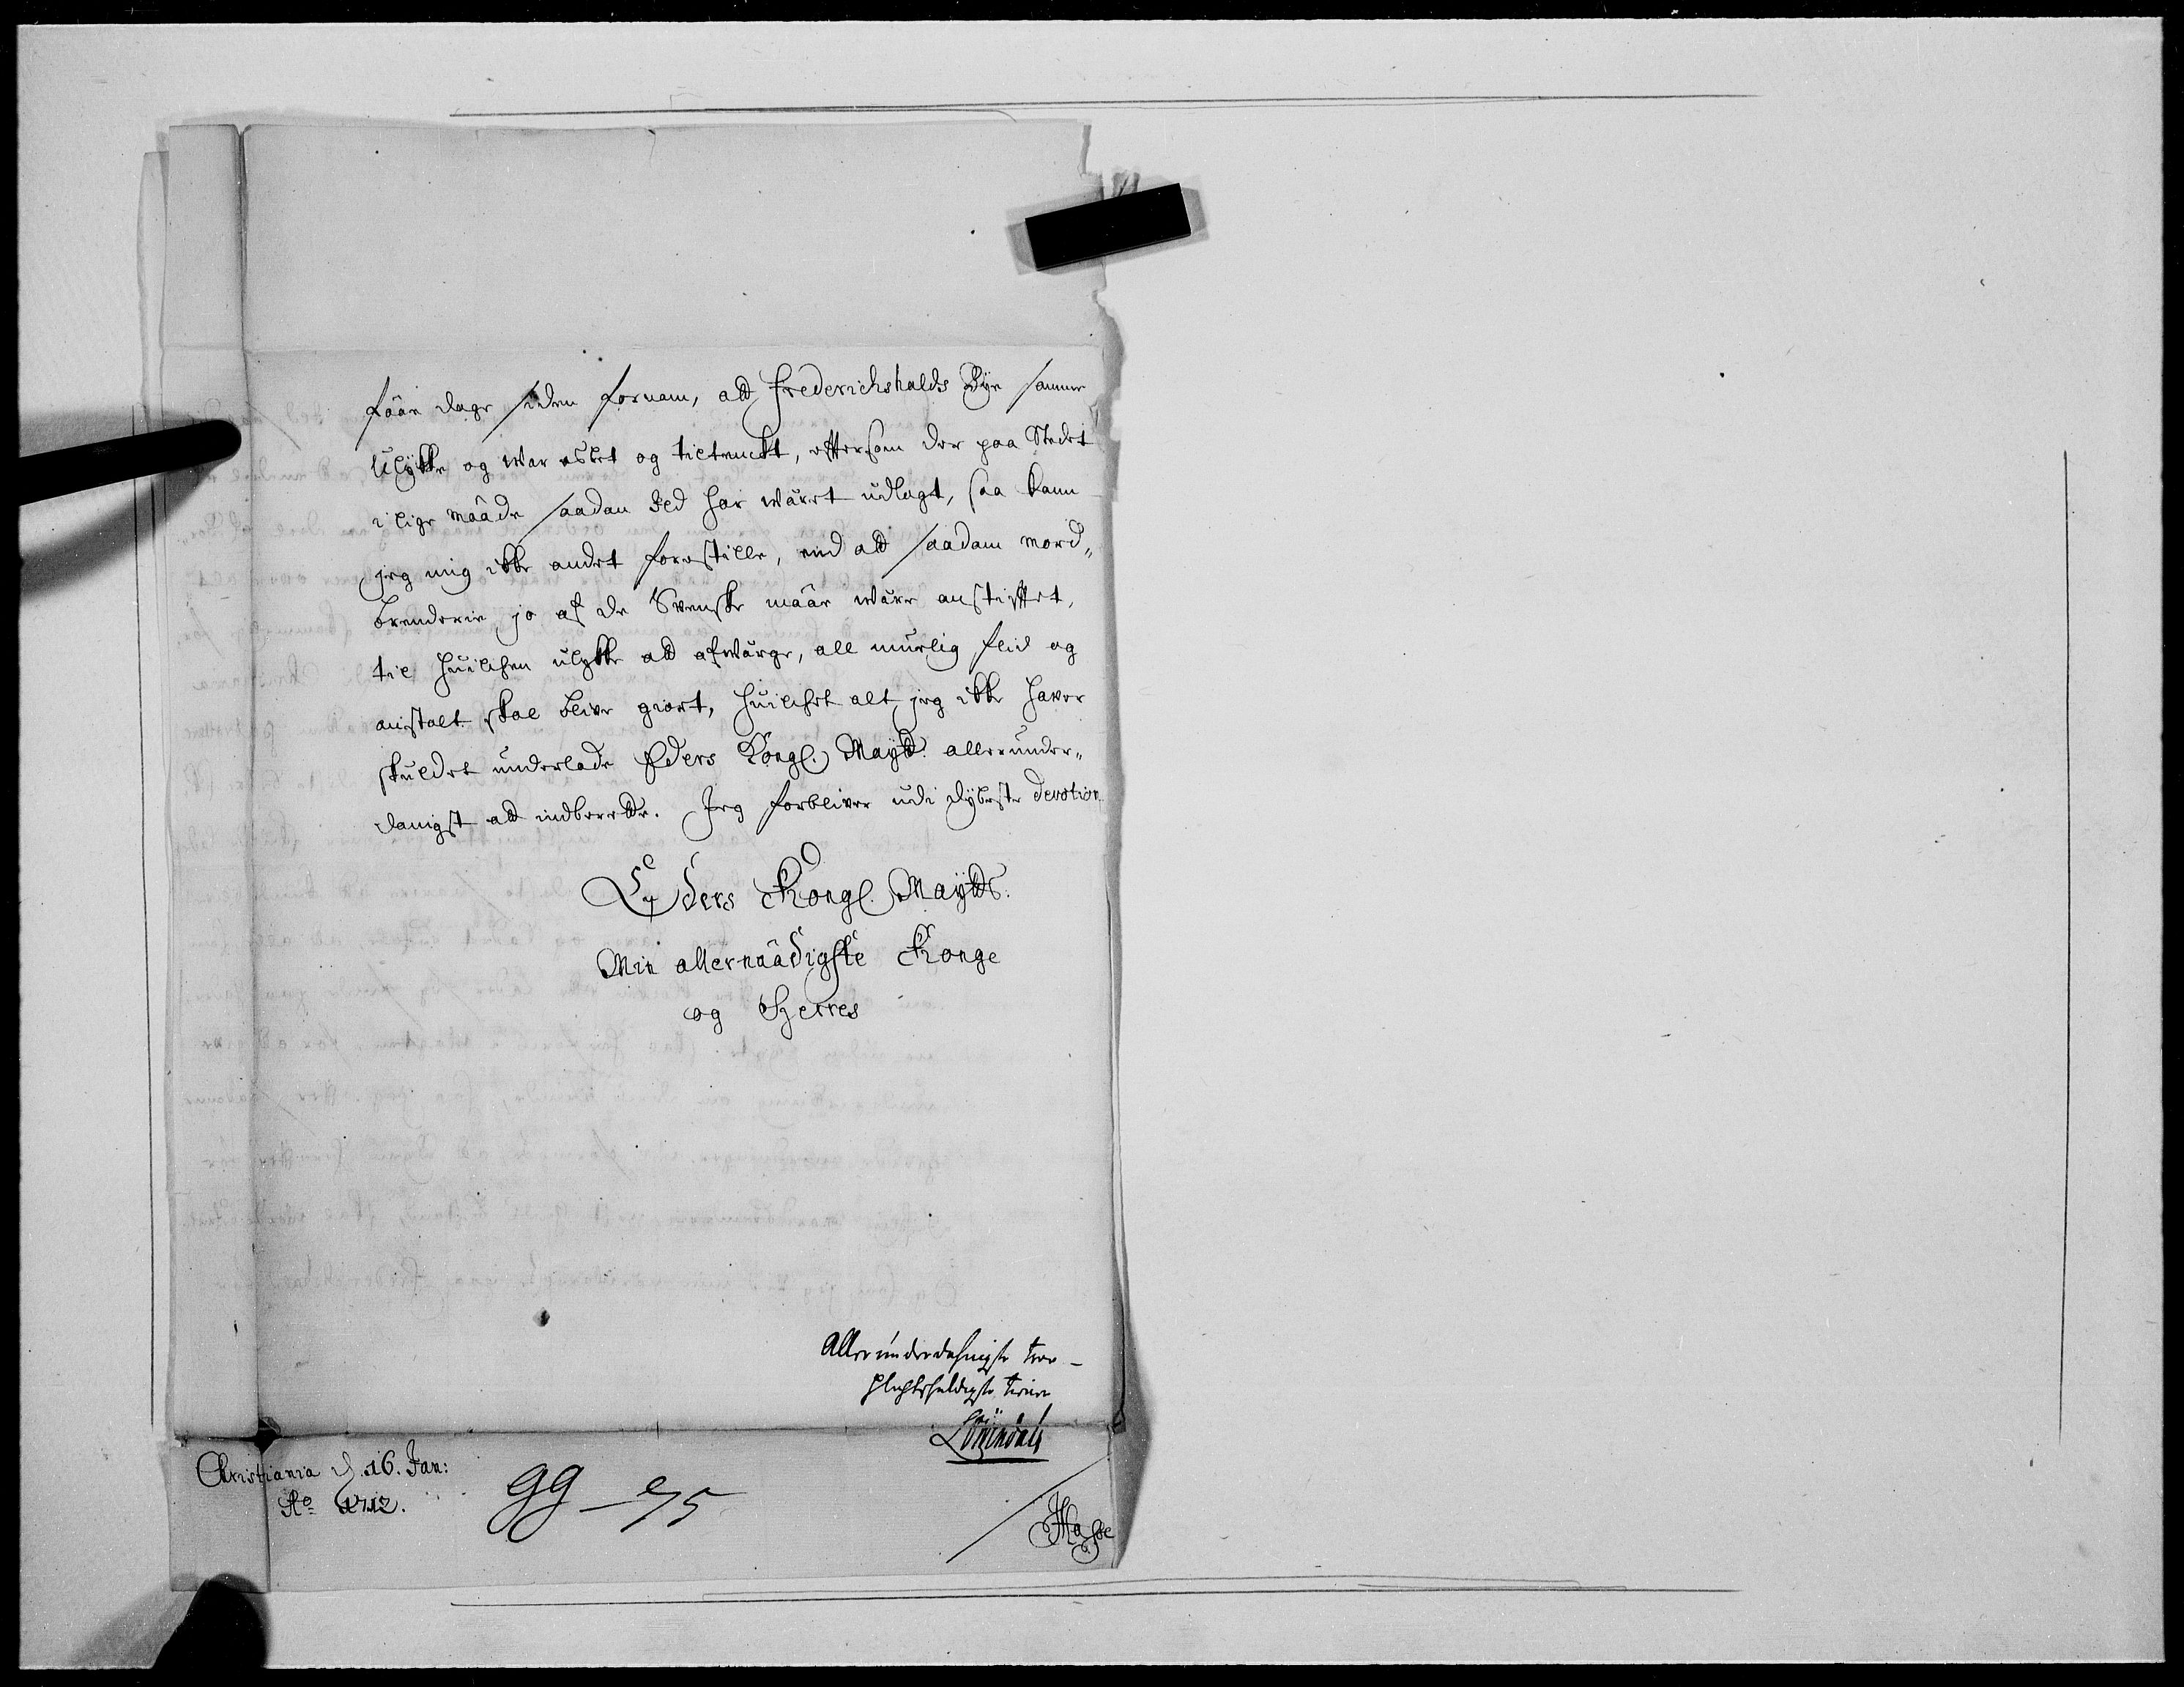 fáae dage siden fornam, att Frederichshalds Bÿe samme
Ulÿkke og war esbet og tiltenckt, eftersom der paa Stedet
i lige maade saadan Ild har wäret udlagt, saa kand
jeg mig ikke andet forestille, end att saadan mord„
brenderie jo af de Svenske maae wäre anstifftet,
til huilchen ulykke att afwärge, all muelig fliid og
anstalt skal blive giort, huilchet alt jeg ikke haver
skuldet underlade Eders Kongl. Maytt. allerunder„
danigst att indberette. Jeg forbliver udi dÿbeste devotion
Eders Kongl. Maÿtts.
Min allernaadigste Konge
og Herres
Allerunderdahnigste troe-
plichtskuldigste tiener
Löwendall
Christiania d. 16. Jan:
Ao 1712.
gg - 75